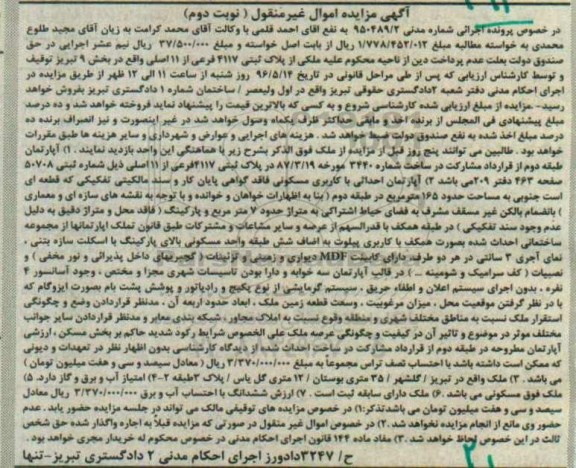 آگهی مزایده اموال غیرمنقول ( نوبت دوم)
در خصوص پرونده اجرائی شماره مدنی ۹۵۰۴۸۹/۲ به نفع اقای احمد قلمی با وکالت آقای محمد کرامت به زیان آقای مجید طلوع
محمدی به خواسته مطالبه مبلغ ۱/۷۷۸/۴۵۲/۰۱۲ ریال از بابت اصل خواسته و مبلغ ۳۷/۵۰۰/۰۰۰ ریال نیم عشر اجرایی در حق
صندوق دولت بعلت عدم پرداخت دین از ناحیه محکوم علیه ملکی از پلاک ثبتی ۴۱۱۷ فرعی از ۱۱ اصلی واقع در بخش ۹ تبریز توقیف
و توسط کارشناس ارزیابی که پس از طی مراحل قانونی در تاریخ ۹۶/۵/۱۴ روز شنبه از ساعت ۱۱ الی ۱۲ ظهر از طریق مزایده در
اجرای احکام مدنی دفتر شعبه ۲دادگستری حقوقی تبریز واقع در اول ولیعصر / ساختمان شماره ۱ دادگستری تبریز بفروش خواهد
رسید- .مزایده از مبلغ ارزیابی شده کارشناسی شروع و به کسی که بالاترین قیمت را پیشنهاد نماید فروخته خواهد شد و ده درصد
مبلغ پیشنهادی فی المجلس از برنده اخذ و مابقی حداکثر ظرف یکماه وصول خواهد شد در غیر اینصورت و نیز انصراف برنده ده
درصد مبلغ اخذ شده به نفع صندوق دولت ضبط خواهد شد . هزینه های اجرایی و عوارض و شهرداری و سایر هزینه ها طبق مقررات
خواهد بود . طالبین می توانند پنج روز قبل از مزایده از ملک فوق الذکر بشرح زیر با هماهنگی این واحد بازدید نمایند . ۱) آپارتمان
طبقه دوم از قرارداد مشارکت در ساخت شماره ۳۴۴۰ مورخه ۸۷/۳/۱۹ در پلاک ثبتی ۴۱۱۷فرعی از ۱۱اصلی ذیل شماره ثبتی ۵۰۷۰۸
صفحه ۴۶۳ دفتر ۲۰۹می باشد ۲) آپارتمان احداثی با کاربری مسکونی فاقد گواهی پایان کار و سند مالکیتی تفکیکی که قطعه ای
است جنوبی به مساحت حدود ۱۶۵ مترمربع در طبقه دوم ( بنا به اظهارات خواهان و خوانده و با توجه به نقشه های سازه ای و معماری
) بانضمام بالکن غیر مسقف مشرف به فضای حیاط اشتراکی به متراژ حدود ۷ متر مربع و پارکینگ ( فاقد محل و متراژ دقیق به دلیل
عدم وجود سند تفکیکی ) در طبقه همکف با قدرالسهم از عرصه و سایر مشاعات و مشترکات طبق قانون تملک اپارتمانها از مجموعه
ساختمانی احداث شده بصورت همکف با کاربری پیلوت به اضاف شش طبقه واحد مسکونی بالای پارکینگ با اسکلت سازه بتنی ،
نمای آجری ۳ سانتی در هر دو طرف، دارای کابینت MDF دیواری و زمینی و تزئینات ( گچبریهای داخل پذیرائی و نور مخفی ) و
نصبیات ( کف سرامیک و شومینه ... ) در قالب آپارتمان سه خوابه و دارا بودن تاسیسات شهری مجزا و مختص ، وجود آسانسور ۴
نفره ، بدون اجرای سیستم اعلان و اطفاء حریق ، سیستم گرمایشی از نوع پکیج و رادیاتور و پوشش پشت بام بصورت ایزوگام که
با در نظر گرفتن موقعیت محل ، میزان مرغوبیت ، وسعت قطعه زمین ملک ، ابعاد حدود اربعه آن ، مدنظر قراردادن وضع و چگونگی
استقرار ملک نسبت به مناطق مختلف شهری و منطقه وقوع نسبت به املاک مجاور ، شبکه بندی معابر و مدنظر قراردادن سایر جوانب
مختلف موثر در موضوع و تاثیر آن در کیفیت و چگونگی عرصه ملک علی الخصوص شرایط رکود شدید حاکم بر بخش مسکن ، ارزشی
آپارتمان مطروحه در طبقه دوم از قرارداد مشارکت در ساخت احداث شده از دیدگاه کارشناسی بدون اظهار نظر در تعهدات و دیونی
که ممکن است داشته باشد با احتساب نصف تراس مجموعاً به مبلغ ۳/۳۷۰/۰۰۰/۰۰۰ ریال ( معادل سیصد و سی و هفت میلیون تومان )
می باشد . ۳) ملک واقع در تبریز / گلشهر / ۳۵ متری بوستان / ۱۲ متری گل یاس / پلاک ۳طبقه ۲-۴) امتیاز آب و برق و گاز دارد. ۵)
ملک فوق مسکونی می باشد .۶) ملک دارای سابقه ثبت است . ۷) ارزش ششدانگ با احتساب آب و برق ۳/۳۷۰/۰۰۰/۰۰۰ ریال معادل
سیصد و سی و هفت میلیون تومان می باشدتذکر:۱) در خصوص مزایده های توقیفی مالک می تواند در جلسه مزایده حضور یابد . عدم
حضور وی مانع از انجام مزایده نخواهد شد .۲) در خصوص اموال غیر منقول در صورتی که مزایده قبلاً به اجاره واگذار شده حق شخص
ثالث در این خصوص لحاظ خواهد شد .۳) مفاد ماده ۱۴۴ قانون اجرای احکام مدنی در خصوص محکوم له خریدار مجری خواهد بود .
ح/ ۳۲۴۷دادورز اجرای احکام مدنی ۲ دادگستری تبریز-تنها